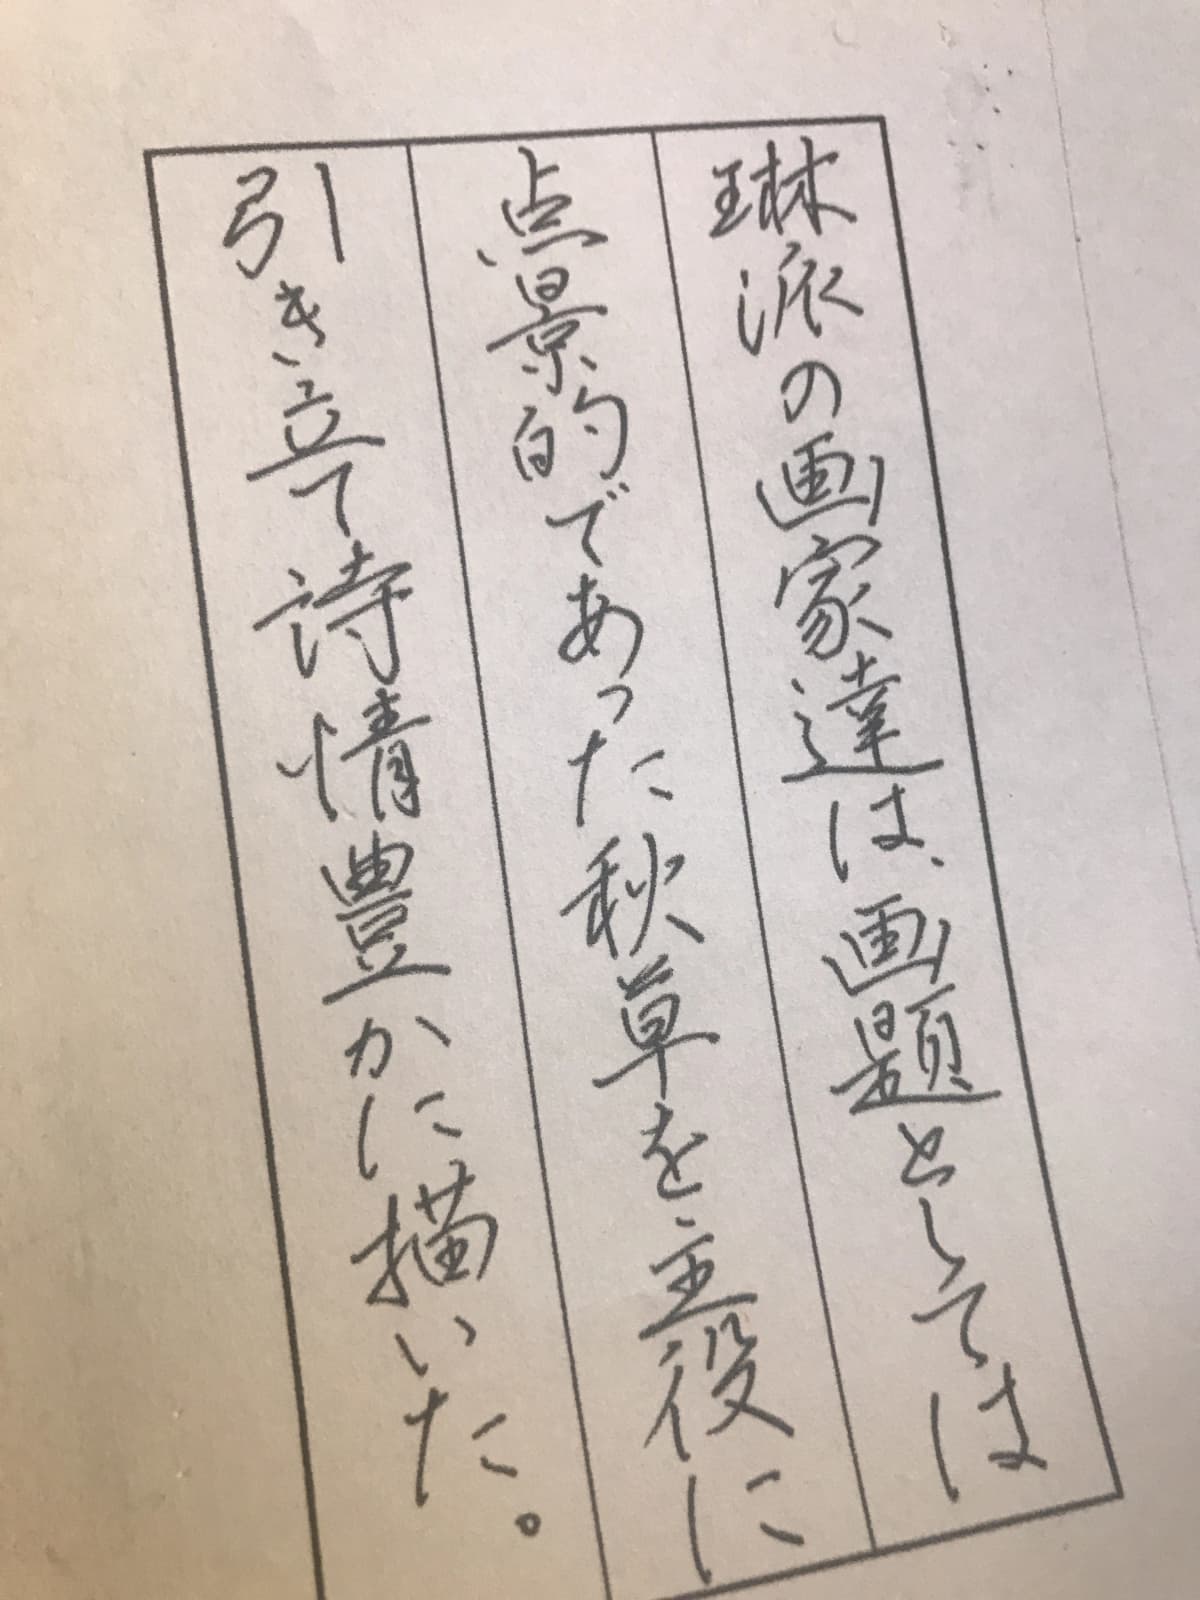 琳派の画家達は、画題としては
点景的であった秋草を主役に
引き立て詩情豊かに描いた。